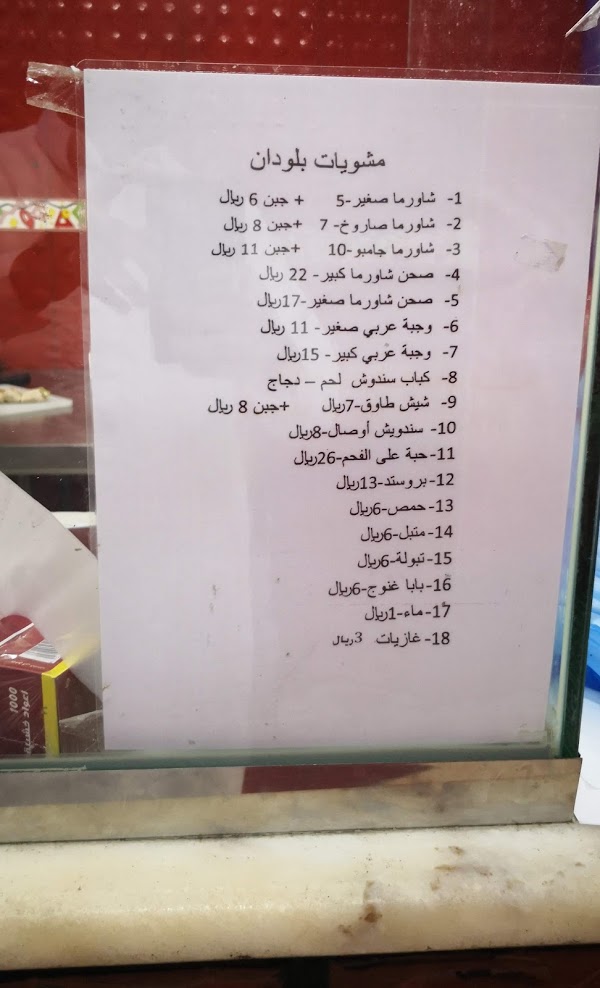 مشويات بلودان
1- شاورما صغير-5 + جبن 6 ريال
2- شاورما صاروخ- 7 +جبن 8 ريال
3- شاورما جامبو-10 +جبن 11 ريال
4- صحن شاورما كبير- 22 ريال
5- صحن شاورما صغير-17ريال
6- وجبة عربي صغير- 11 ريال
7- وجبة عربي كبير- 15ريال
8- كباب سندوش لحم – دجاج
9- شيش طاوق-7ريال +جبن 8 ريال
10- سندويش أوصال-8ريال
11-حبة على الفحم-26ريال
12-بروستد-13ريال
13- حمص-6ريال
14- متبل-6ريال
15-تبولة-6ريال
16-بابا غنوج-6ريال
17- ماء-1ريال
18- غازيات 3ريال
1000